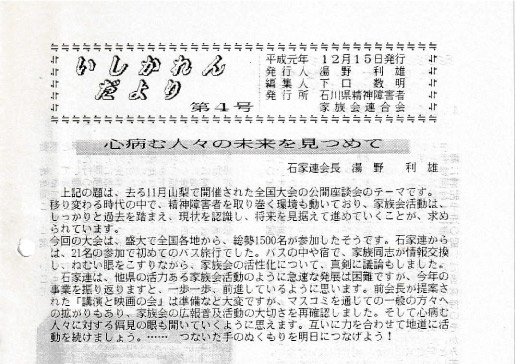 いしかれん
だより
第4号
平成元年 12月15日発行
発行人 湯野 利雄
編集人 下口 数明
発行所 石川県精神障害者
家族会連合会
心病む人々の未来を見つめて
石家連会長 湯野 利雄
上記の題は、去る11月山梨で開催された全国大会の公開座談会のテーマです。
移り変わる時代の中で、精神障害者を取り巻く環境も動いており、家族会活動は、
しっかりと過去を踏まえ、現状を認識し、将来を見据えて進めていくことが、求め
られています。
今回の大会は、盛大で全国各地から、総勢1500名が参加したそうです。石家連から
は、21名の参加で初めてのバス旅行でした。バスの中や宿で、家族同志が情報交換
し、ねむい眼をこすりながら、家族会の活性化について、真剣に議論もしました。
石家連は、他県の活力ある家族会活動のように急速な発展は困難ですが、今年の
事業を振り返りますと、一歩一歩、前進しているように思います。前会長が提案さ
れた「講演と映画の会」は準備など大変ですが、マスコミを通じての一般の方々へ
の拡がりもあり、家族会の広報普及活動の大切さを再確認しました。そして心病む
人々に対する偏見の眼も開いていくように思えます。互いに力を合わせて地道に活
動を続けましょう。…… つないだ手のぬくもりを明日につなげよう！